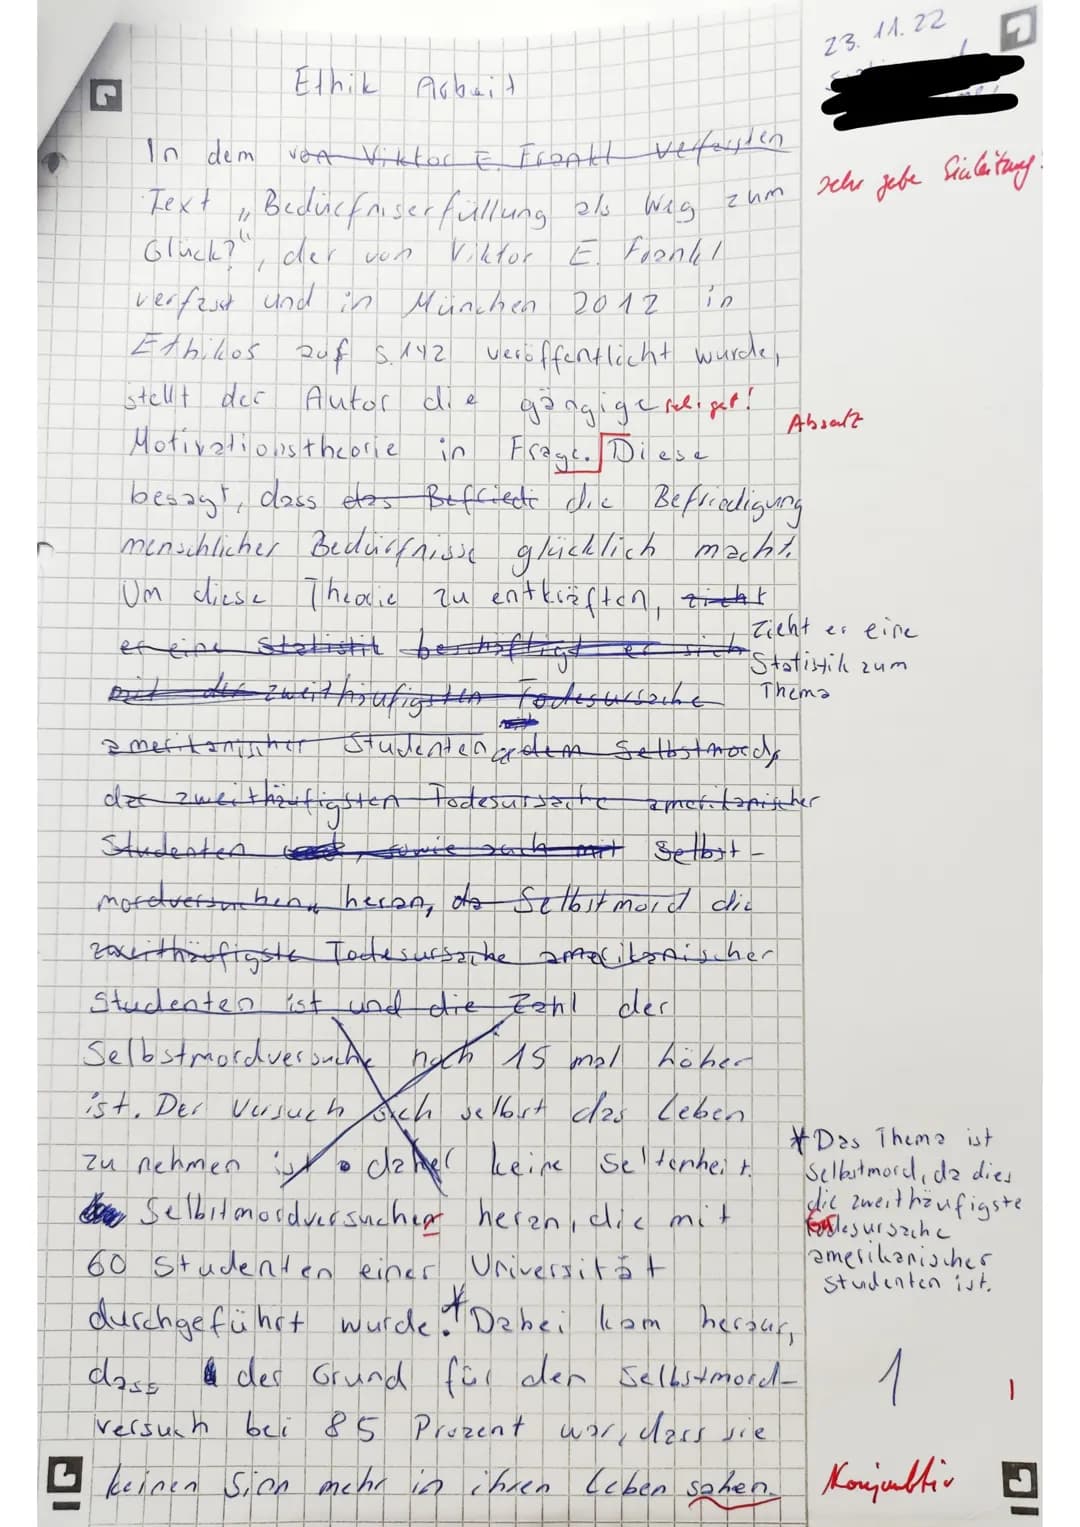 23.11.22
Ethik Arbeit
In dem von Viktor E. Frankl verfassten
sehr gute Einleitung!
Text „Bedürfniserfüllung als Weg zum
Glück?“, der von Viktor E. Frankl
verfasst und in München 2012 in
Ethikos auf S.142 veröffentlicht wurde,
stellt der Autor die gängige
Absatz
Motivationstheorie in Frage. Diese
besagt, dass das Befriedi die Befriedigung
menschlicher Bedürfnisse glücklich macht.
Um diese Theorie zu entkräften, zieht
er eine Statistik beschäftigt er sich
zieht er eine
Statistik zum
Thema
mit der zweithäufigsten Todesursache
amerikanischer Studenten dem Selbstmord,
der zweithäufigsten Todesursache amerikanischer
Studenten, sowie auch mit Selbst-
mordversuchen heran, da Selbstmord die
zweithäufigste Todesursache amerikanischer
Studenten ist und die Zahl der
Selbstmordversuche noch 15 mal höher
ist. Der Versuch sich selbst das Leben
zu nehmen ist daher keine Seltenheit.
Selbstmordversuchen heran, die mit
60 Studenten einer Universität
durchgeführt wurde.* Dabei kam heraus,
* Das Thema ist
Selbstmord, da dies
die zweithäufigste
Todesursache
amerikanischer
Studenten ist.
dass der Grund für den Selbstmord-
versuch bei 85 Prozent war, dass sie
keinen Sinn mehr in ihren Leben sahen.
1
Konjunktiv